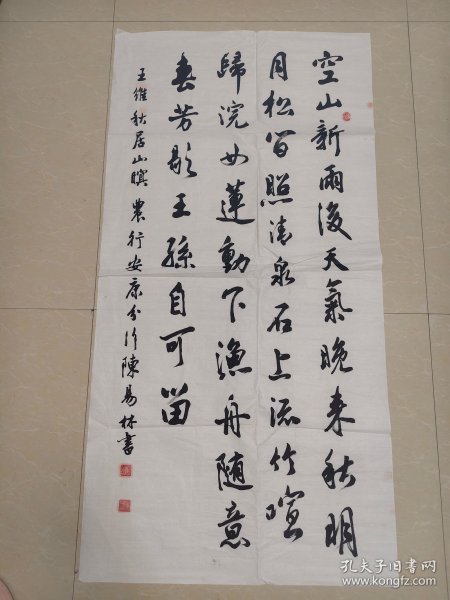 空山新雨後天氣晚来秋明
月松间照清泉石上流竹喧
歸浣女蓮動下漁舟随意
春芳歇王孫自可留
王維秋居山暝農行安康分行陳易林書
孔夫子旧书网
www.kongfz.com